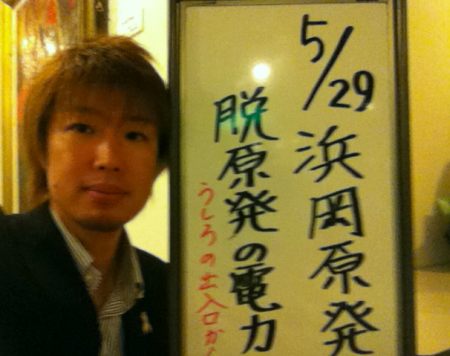 5/29浜岡原発
脱原発の電力
うしろの出入口か